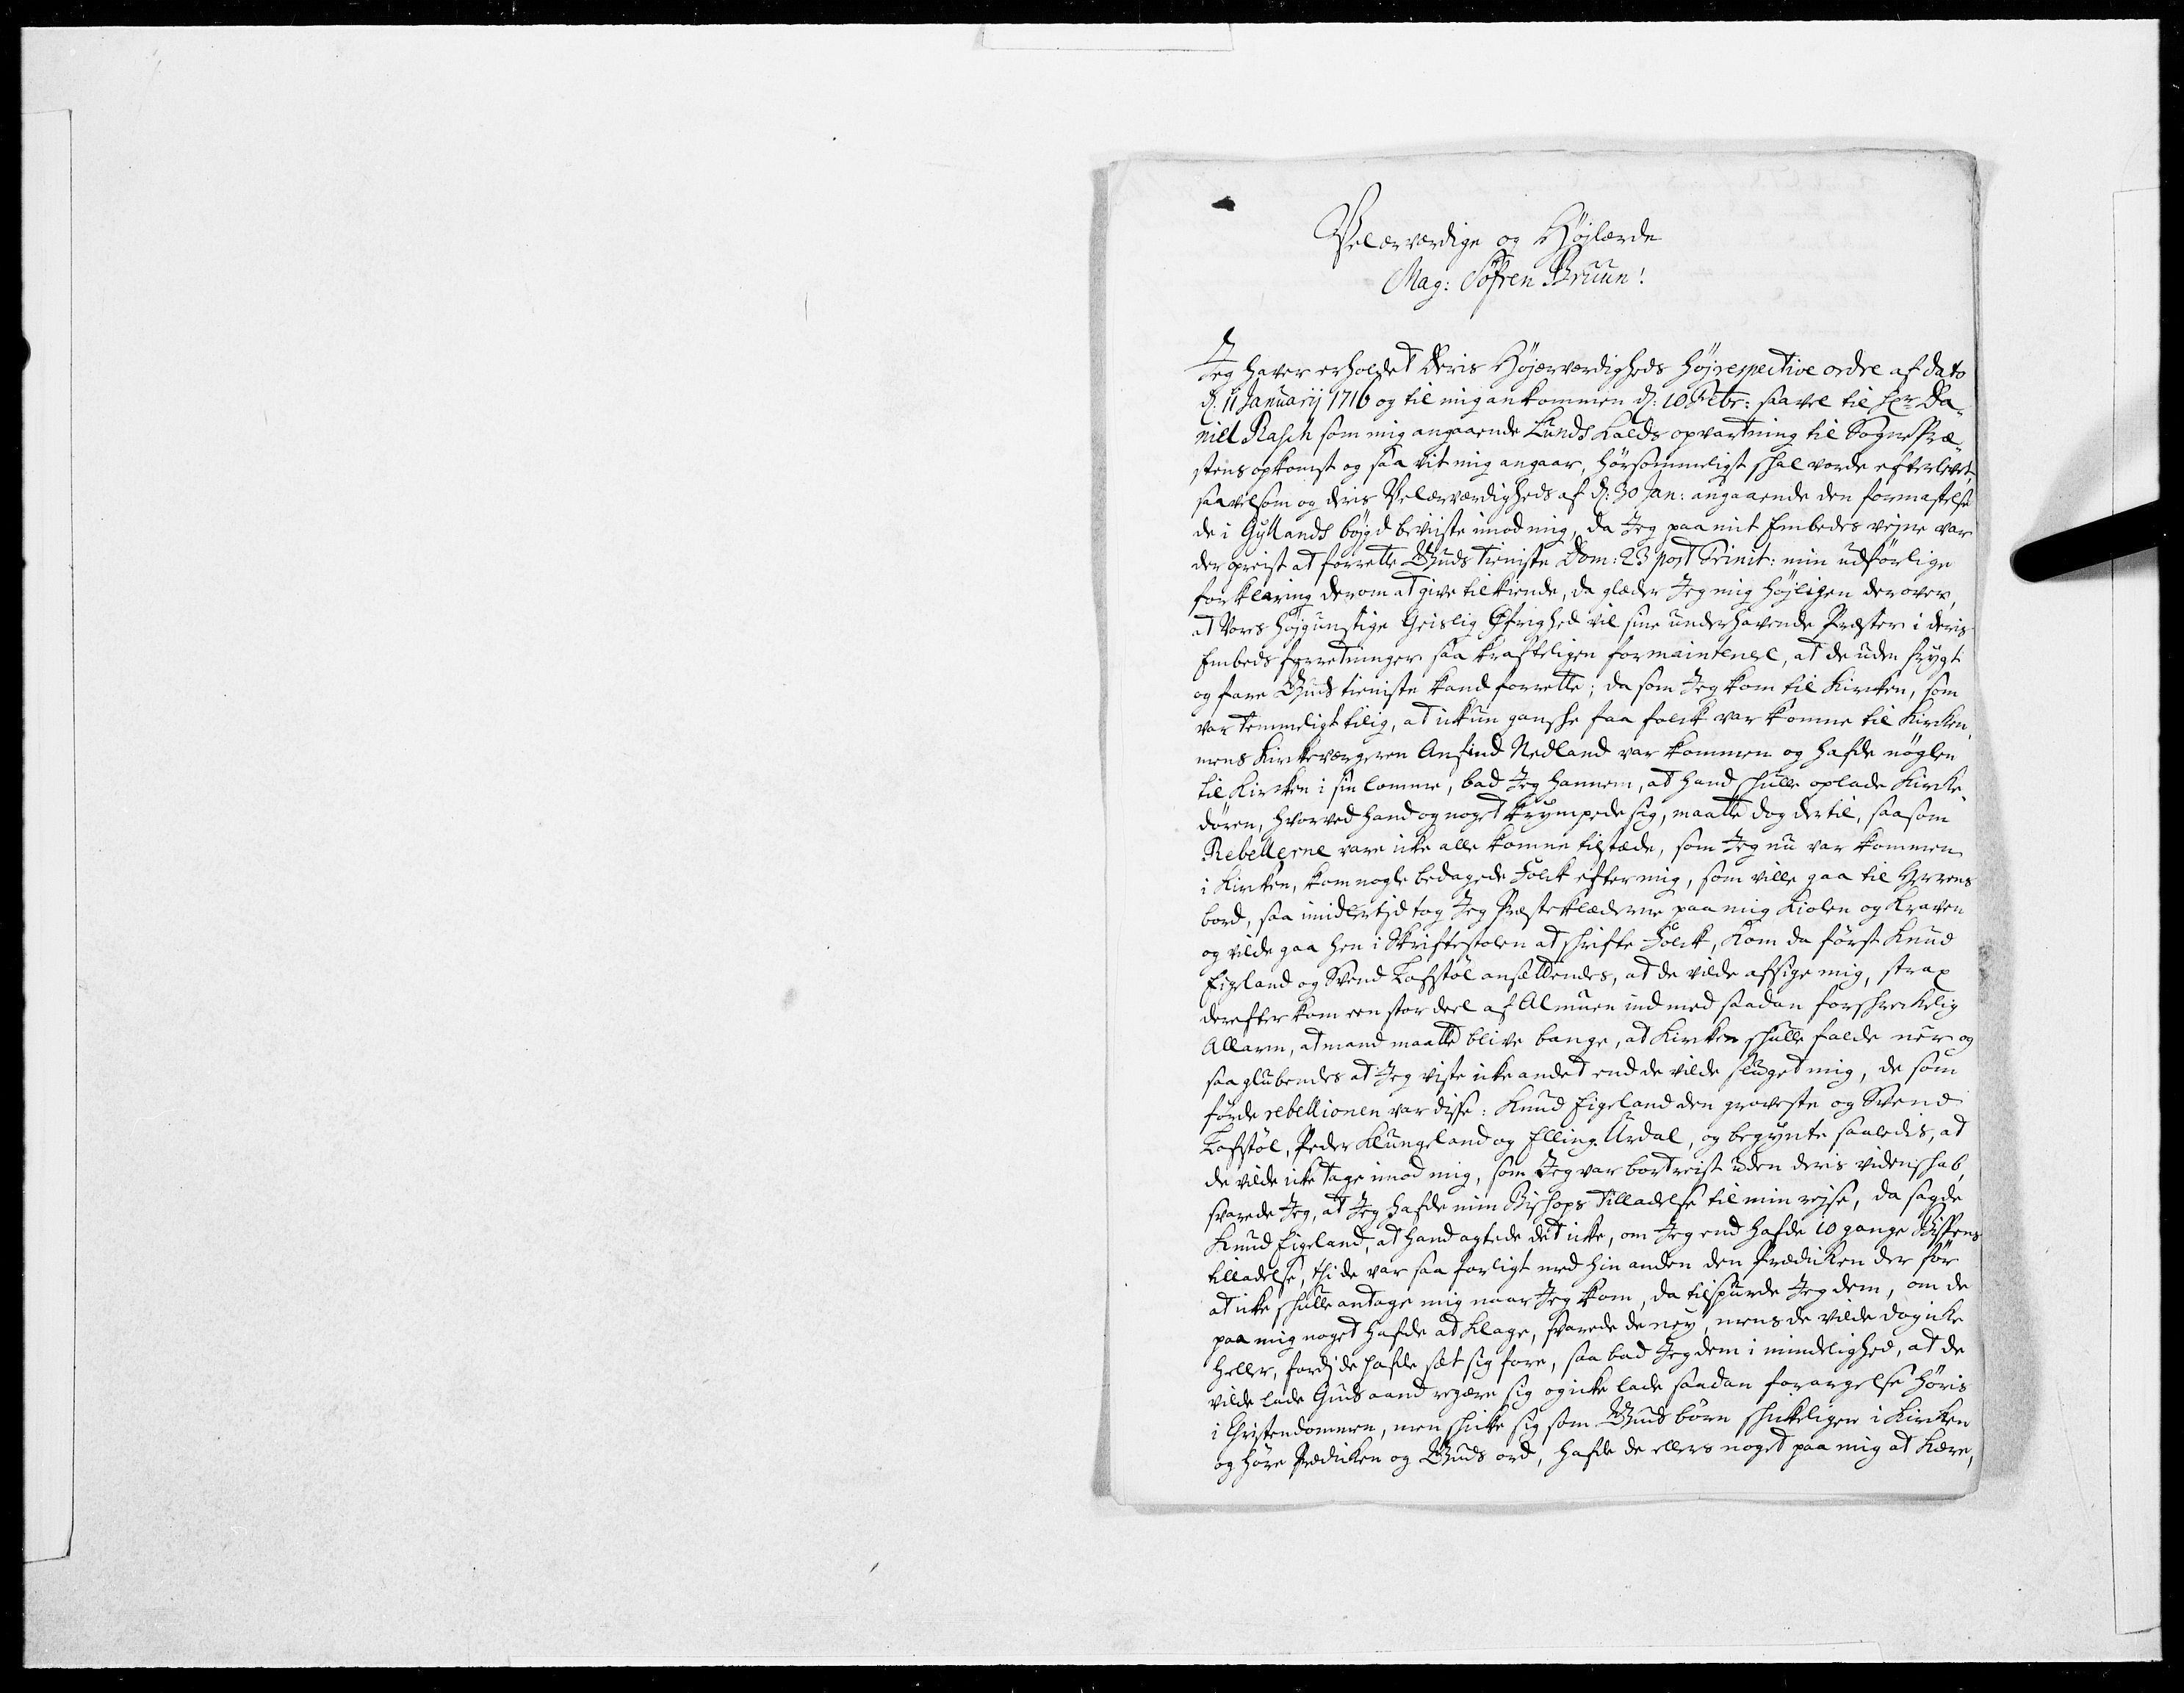 Velærværdige og Højlærde
Mag: Søfren Bruun!
Jeg haver erholdet Deris Højærværdigheds højrespective ordre af dato
d: 11 Januarij 1716 og til mig ankommen d: 10 Febr: saavel til hr Da-
niel Rasch som mig angaaende Lunds Kalds opvartning til Sognepræ-
stens opkomst og saa vit mig angaar, hørsommeligst skal vorde efterlevet,
saavelsom og deris Velærværdigheds af d: 30 Jan: angaaende den formastelse
de i Gyllands bøygd beviiste imod mig, da Jeg paa mit Embedes vejne var
der opreist at forrette Guds tieniste Dom: 23 post Trinit: min udførlige
forklaring derom at give tilkiende, da glæder Jeg mig højligen derover,
at Vores højgunstige Geislig Øfrighed vil sine underhavende Præster i deris
Embeds forretninger saa krafteligen formaintenere, at de uden frygt
og fare Guds tieniste kand forrette; da som Jeg kom til Kirken, som
var temmeligt tilig, at ickun ganske faa folck var komne til Kircken,
mens Kirkeværgeren Anfind Nedland var kommen og hafde nøglen
til Kircken i sin lomme, bad Jeg hannem, at hand skulle oplade Kircke-
døren, hvorved hand og noget krympede sig, maatte dog dertil, saasom
Rebellerne vare icke alle komne tilstæde, som Jeg nu var kommen
i Kirken, kom nogle bedagede Folck efter mig, som ville gaa til Herrens
bord, saa imidlertjd tog Jeg Præsteklæderne paa mig Kiolen og Kraven
og vilde gaa hen i Skriftestolen at skrifte Folck, kom da først Knud
Eigland og Svend Lofstøl ansættendes, at de vilde afsige mig, strax
derefter kom een stor deel af Almuen ind med saadan forskreckelig
Allarm, at mand maatte blive bange, at Kirken skulle falde neer og
saa glubendes at Jeg viste icke andet end de vilde sluget mig, de som
førde rebellionen var disse: Knud Eigeland den groveste og Svend
Lofstøl, Peder Klungeland og Elling Urdal, og begynte saaledis, at
de vilde icke tage imod mig, som Jeg var bortreist uden deris videnskab,
svarede Jeg, at Jeg hafde min Biskops tilladelse til min rejse, da sagde
Knud Eigeland, at hand agtede det icke, om Jeg end hafde 10 gange Bispens
tilladelse, thi de var saa forligt med hin anden den Prædicken der før
at icke skulle antage mig naar Jeg kom, da tilspurde Jeg dem, om de
paa mig noget hafde at klage, svarede de ney, mens de vilde dog icke
heller, fordj de hafde sæt sig fore, saa bad Jeg dem i mindelighed, at de
vilde lade Guds aand regære sig og icke lade saadan forargelse høris
i Christendommen, men skicke sig som Guds børn skickeligen i Kircken
og høre Prædicken og Guds ord, hafde de ellers noget paa mig at kære,